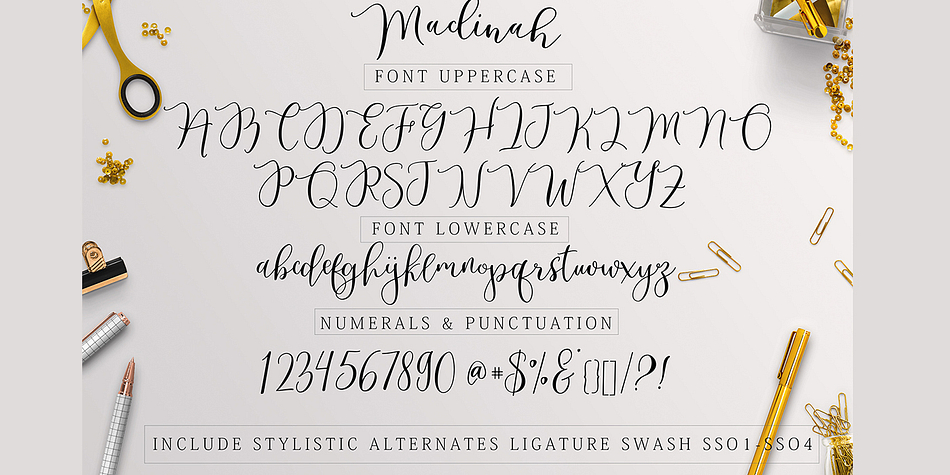 Madinah
FONT UPPERCASE
ABCDEFGHIJKLMNO
PQRSTUVWXYZ
FONT LOWERCASE
abcdefghijklmnopqrstuvwxyz
NUMERALS & PUNCTUATION
1234567890 @#$%& {}[]/?!
INCLUDE STYLISTIC ALTERNATES LIGATURE SWASH SS01-SS04